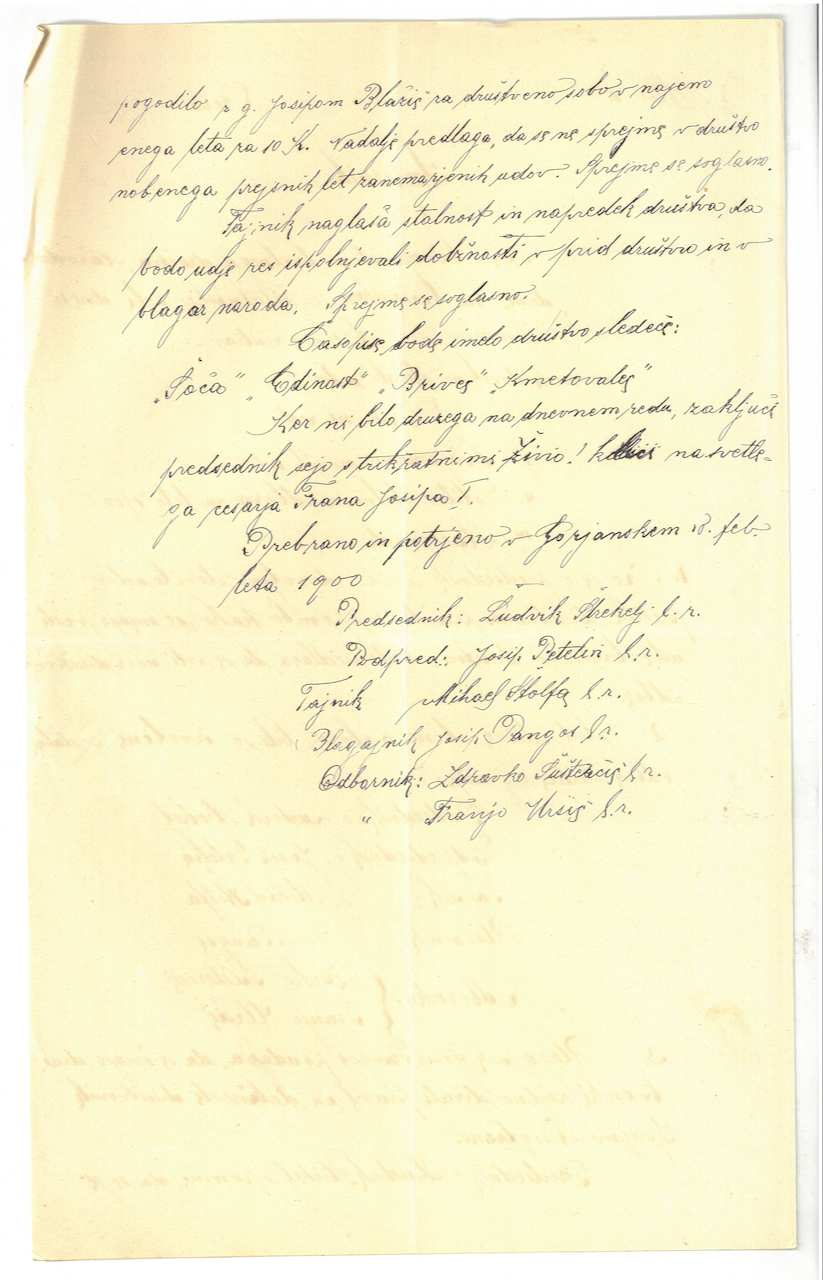 pogodilo z g. Josipom Blažič za društveno sobo v najem
enega leta za 10 K. Nadalje predlaga, da se ne sprejme v društvo
nobenega prejsnih let zanemarjenih udov. Sprejme se soglasno.
Tajnik naglaša stalnost in napredek društva, da
bodo udje res ispolnjevali dolžnosti v prid društvu in v
blagor naroda. Sprejme se soglasno.
Časopise bode imelo društvo sledeče:
"Soča" "Edinost" "Brivec" "Kmetovalec"
Ker ni bilo druzega na dnevnem redu, zaključi
predsednik sejo s trikratnimi živio! klici na svetle-
ga cesarja Frana Josipa I.
Prebrano in potrjeno v Gorjanskem 18. feb.
leta 1900
Predsednik: Ludvik Štrekelj l. r.
Podpred.: Josip Petelin l. r.
Tajnik Mihael Štolfa l. r.
Blagajnik Josip Pangos l. r.
Odbornik: Zdravko Šusteršič l. r.
" Franjo Uršič l. r.